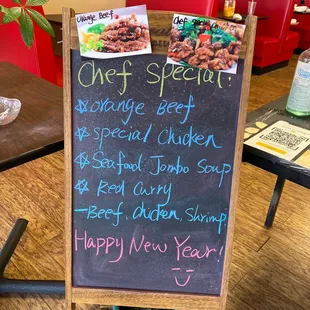 Orange Beef
Chef S
Chef Special!
☆ orange Beef
☆ special chicken
☆ Seafood Jombo Soup
☆ Red Curry
- Beef, chicken, Shrimp
Happy New Year!